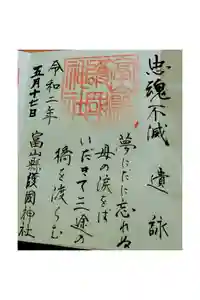 忠魂不滅 遺詠
夢にだに忘れぬ
母の涙をば
いだきて三途の
橋を渡らむ
令和二年
五月十七日
富山縣護國神社